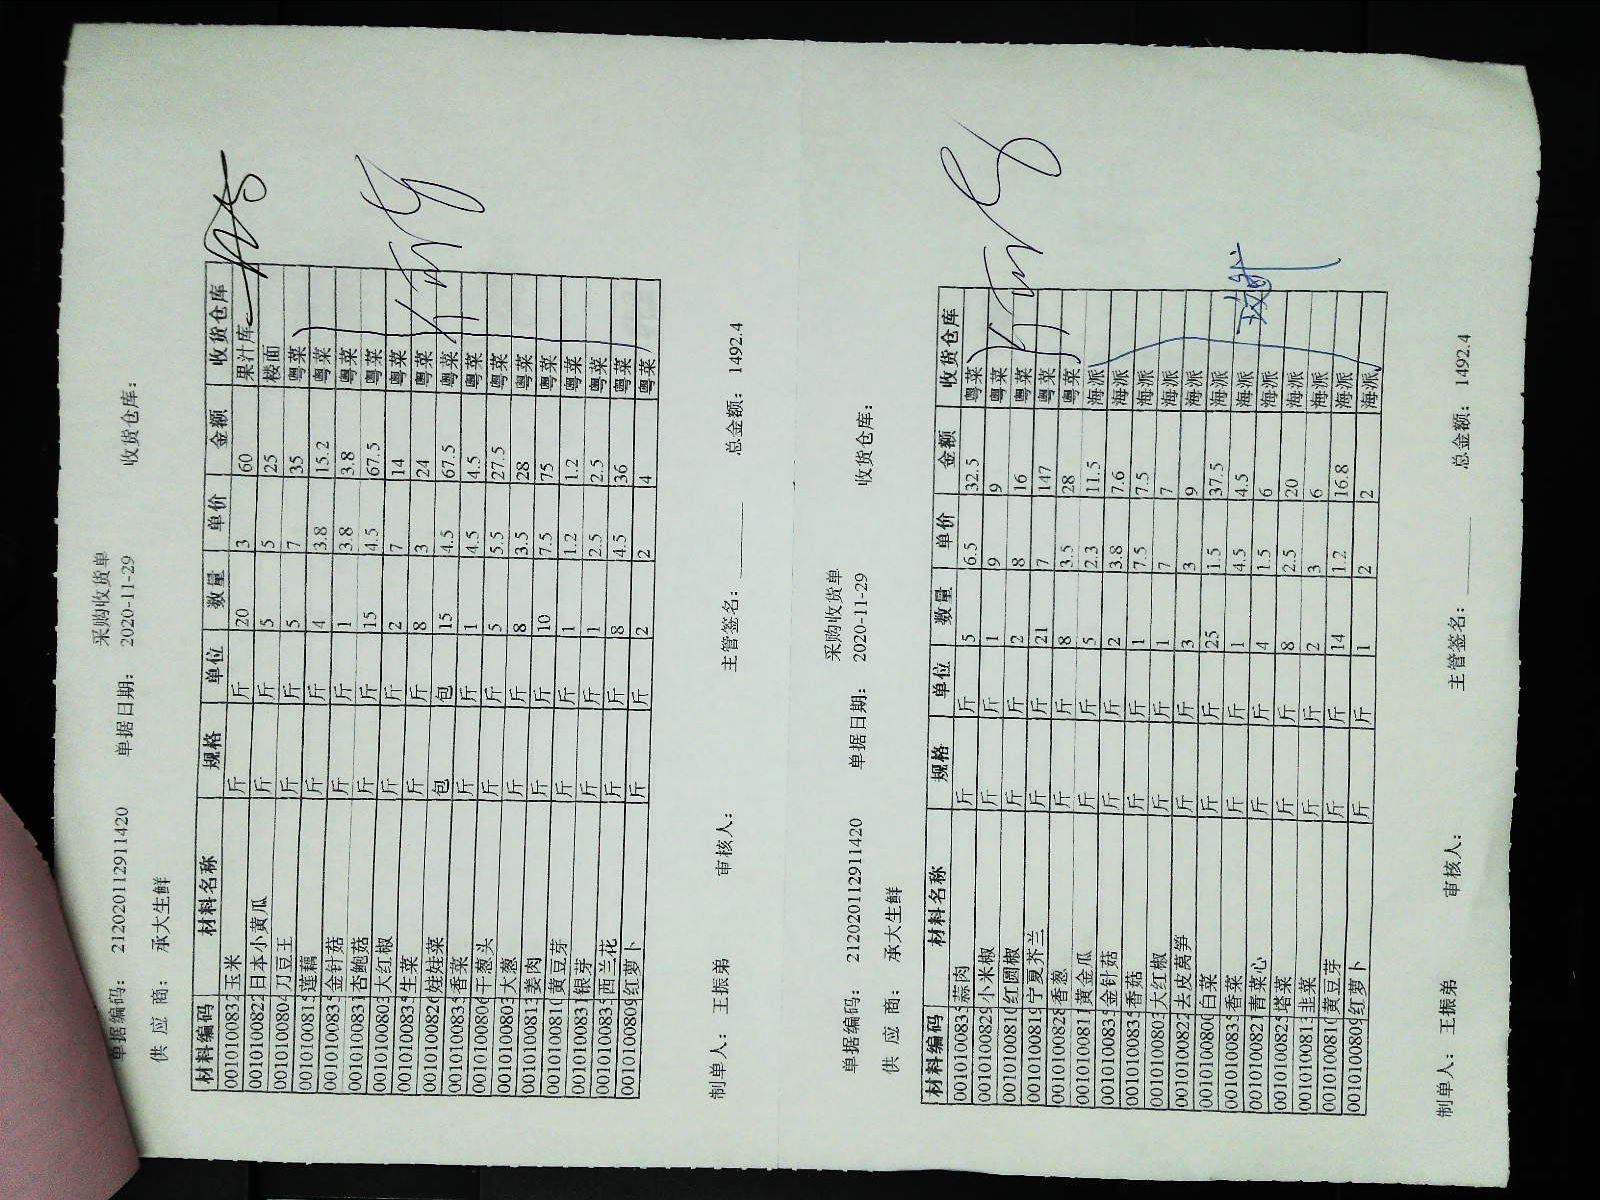 采购收货单
单据编码: 2120201129114​20 单据日期: 2020-11-29 收货仓库:
供 应 商: 承大生鲜
材料编码 材料名称 规格 单位 数量 单价 金额 收货仓库
0010100832 玉米 斤 斤 20 3 60 果汁库
0010100822 日本小黄瓜 斤 斤 5 5 25 楼面
0010100804 刀豆王 斤 斤 5 7 35 粤菜
0010100815 莲藕 斤 斤 4 3.8 15.2 粤菜
0010100835 金针菇 斤 斤 1 3.8 3.8 粤菜
0010100831 杏鲍菇 斤 斤 15 4.5 67.5 粤菜
0010100803 大红椒 斤 斤 2 7 14 粤菜
0010100835 生菜 斤 斤 8 3 24 粤菜
0010100826 娃娃菜 包 包 15 4.5 67.5 粤菜
0010100835 香菜 斤 斤 1 4.5 4.5 粤菜
0010100806 干葱头 斤 斤 5 5.5 27.5 粤菜
0010100803 大葱 斤 斤 8 3.5 28 粤菜
0010100813 姜肉 斤 斤 10 7.5 75 粤菜
0010100810 黄豆芽 斤 斤 1 1.2 1.2 粤菜
0010100831 银芽 斤 斤 1 2.5 2.5 粤菜
0010100835 西兰花 斤 斤 8 4.5 36 粤菜
0010100809 红萝卜 斤 斤 2 2 4 粤菜
制单人: 王振弟 审核人: 主管签名: 总金额: 1492.4
采购收货单
单据编码: 212020112911420 单据日期: 2020-11-29 收货仓库:
供 应 商: 承大生鲜
材料编码 材料名称 规格 单位 数量 单价 金额 收货仓库
0010100835 蒜肉 斤 斤 5 6.5 32.5 粤菜
0010100829 小米椒 斤 斤 1 9 9 粤菜
0010100810 红圆椒 斤 斤 2 8 16 粤菜
0010100819 宁夏芥兰 斤 斤 21 7 147 粤菜
0010100828 香葱 斤 斤 8 3.5 28 粤菜
0010100811 黄金瓜 斤 斤 5 2.3 11.5 海派
0010100835 金针菇 斤 斤 2 3.8 7.6 海派
0010100835 香菇 斤 斤 1 7.5 7.5 海派
0010100803 大红椒 斤 斤 1 7 7 海派
0010100822 去皮莴笋 斤 斤 3 3 9 海派
0010100800 白菜 斤 斤 25 1.5 37.5 海派
0010100835 香菜 斤 斤 1 4.5 4.5 海派
0010100821 青菜心 斤 斤 4 1.5 6 海派
0010100825 塔菜 斤 斤 8 2.5 20 海派
0010100813 韭菜 斤 斤 2 3 6 海派
0010100810 黄豆芽 斤 斤 14 1.2 16.8 海派
0010100809 红萝卜 斤 斤 1 2 2 海派
制单人: 王振弟 审核人: 主管签名: 总金额: 1492.4